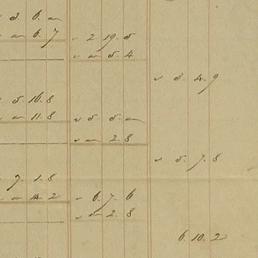 " 3. 6. "
" " 6. 7 " 2 19. 5
" " 5. 4
" 3. 4. 9
" 5. 16. 8
" " 11. 8 " 5. 5. "
" " 2. 8
" 5. 7. 8
" 7. 1. 8
" " 14. 2 " 6. 7. 6
" " 2. 8
6. 10. 2